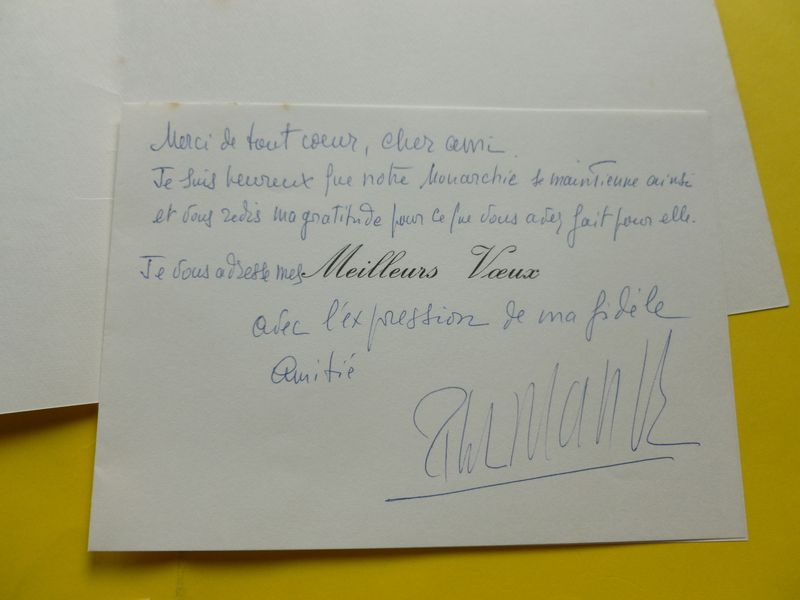 Merci de tout coeur, cher ami.
Je suis heureux que notre Monarchie se maintienne ainsi
et vous redis ma gratitude pour ce que vous avez fait pour elle.
Je vous adresse mes Meilleurs Vœux
avec l'expression de ma fidèle
Amitié